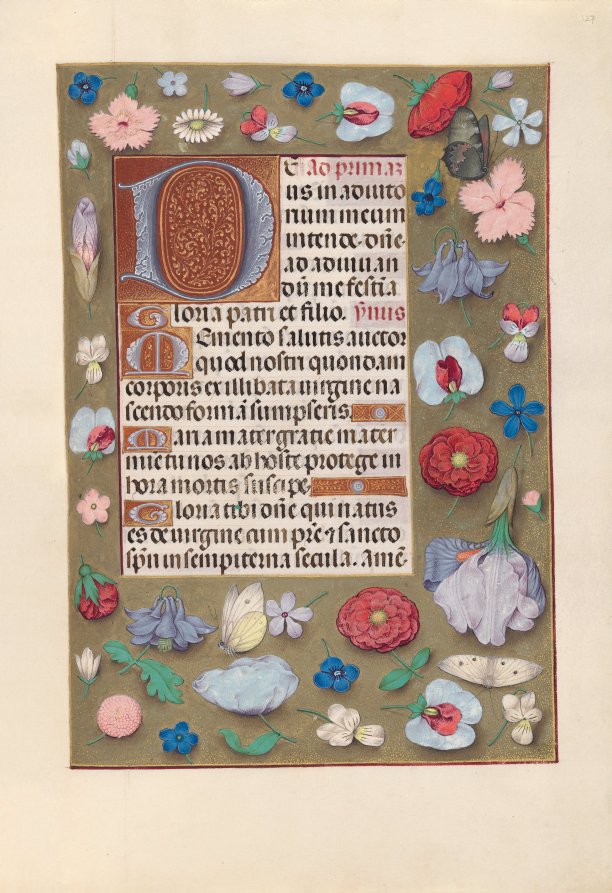 127
DE Ad primaz
us in adiuto
rium meum
intende. dñe
ad adiuuan
dū me festīa
Gloria patri et filio. ymus
Memento salutis auctor
quod nostri quondam
corporis ex illibata uirgine na
scendo formā sumpseris.
Maria mater gratie mater
mie tu nos ab hoste protege in
hora mortis suscipe.
Gloria tibi dñe qui natus
es de uirgine cum prē ⁊ sancto
spū in sempiterna secula. Amē